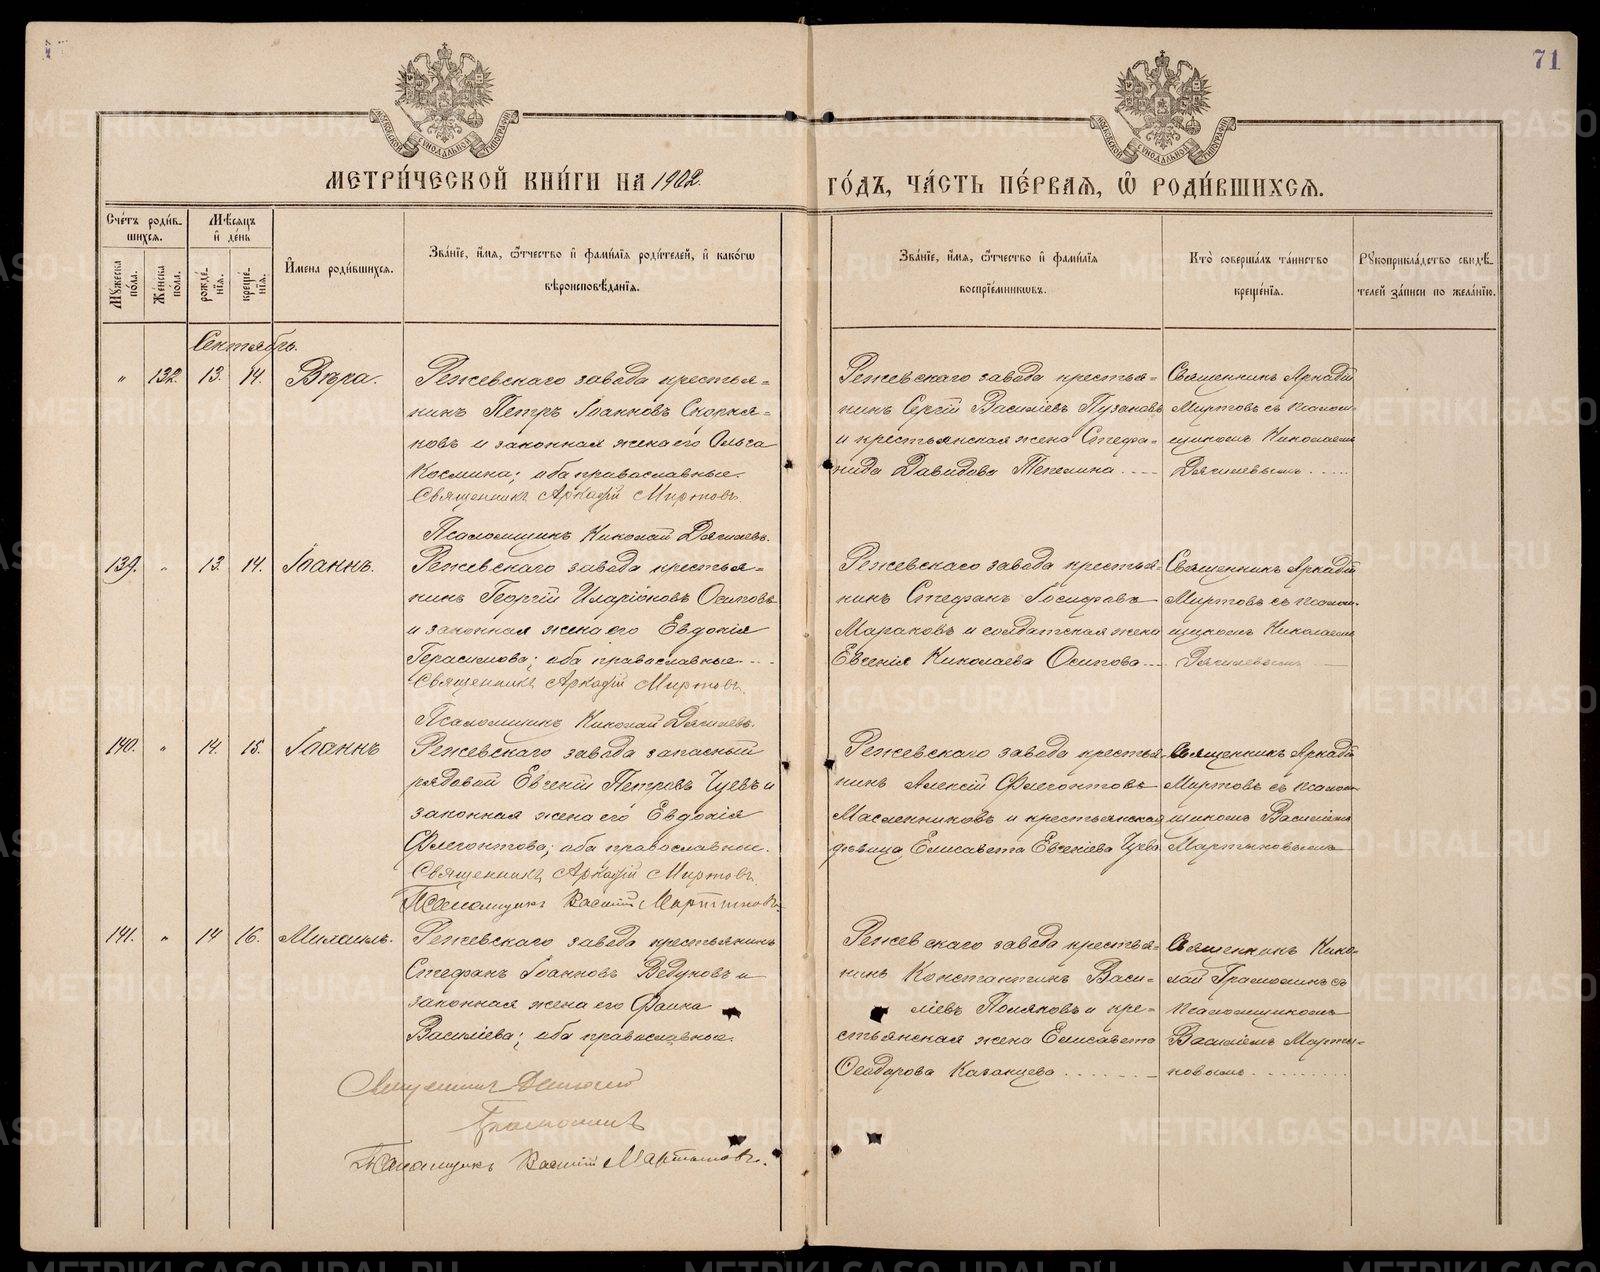 71
МОСКОВСКОЙ СѴНОДАЛЬНОЙ ТИПОГРАФІИ
МОСКОВСКОЙ СѴНОДАЛЬНОЙ ТИПОГРАФІИ
МЕТРИ́ЧЕСКОЙ КНИ́ГИ НА 1902.
ГО́ДЪ, ЧА́СТЬ ПЕ́РВАѦ, Ѿ РОДИ́ВШИХСѦ.
Сче́тъ роди́вшихсѧ.
Мѣ́сѧцъ и҆ де́нь
И҆мена роди́вшихсѧ.
Зва́нїе, и҆́мѧ, ѻ҆́тчество и҆ фами́лїѧ роди́телей, и҆ како́гѡ
вѣроисповѣ́данїѧ.
Зва́нїе, и҆́мѧ, ѻ҆́тчество и҆ фами́лїѧ
воспрїе́мникѡвъ.
Кто̀ соверша́лъ та́инство
креще́нїѧ.
Рꙋкоприкла́дство свидѣ́-
телей за́писи по жела́нїю.
Мꙋ́жеска по́ла.
Же́нска по́ла.
рожде́нїѧ.
креще́нїѧ.
Сентябрь.
„ 132. 13. 14. Вѣра.
Режевскаго завода крестья-
нинъ Петръ Іоанновъ Скорня-
ковъ и законная жена его Ольга
Космина; оба православные.
Священникъ Аркадій Миртовъ.
Псаломщикъ Николай
Режевскаго завода крестья-
нинъ Сергій Василіевъ Пузановъ
и крестьянская жена Стефа-
нида Давидова
Священникъ Аркадій
Миртовъ съ псалом-
щикомъ Николаемъ
139. „ 13. 14. Іоаннъ.
Режевскаго завода крестья-
нинъ Георгій Иларіоновъ Осиповъ
и законная жена его Евдокія
Герасимова; оба православные.
Священникъ Аркадій Миртовъ.
Псаломщикъ Николай
Режевскаго завода крестья-
нинъ Стефанъ Іосифовъ
Мараковъ и солдатская жена
Евгенія Николаева Осипова
Священникъ Аркадій
Миртовъ съ псалом-
щикомъ Николаемъ
140. „ 14. 15. Іоаннъ
Режевскаго завода запасный
рядовой Евгеній Петровъ Чуевъ и
законная жена его Евдокія
Флегонтова; оба православные.
Священникъ Аркадій Миртовъ.
Псаломщикъ Василій Мартыновъ.
Режевскаго завода крестья-
нинъ Алексій Флегонтовъ
Масленниковъ и крестьянская
дѣвица Елисавета Евгеніева Чуева
Священникъ Аркадій
Миртовъ съ псалом-
щикомъ Василіемъ
Мартыновымъ
141. „ 14 16. Михаилъ.
Режевскаго завода крестьянинъ
Стефанъ Іоанновъ Ведуновъ и
законная жена его Фаина
Василіева; оба православные.
Священникъ Николай
Псаломщикъ Василій Мартыновъ.
Режевскаго завода крестья-
нинъ Константинъ Васи-
ліевъ Поляковъ и кре-
стьянская жена Елисавета
Феодорова Казанцева
Священникъ Нико-
лай съ
псаломщикомъ
Василіемъ Марты-
новымъ
METRIKI.GASO-URAL.RU